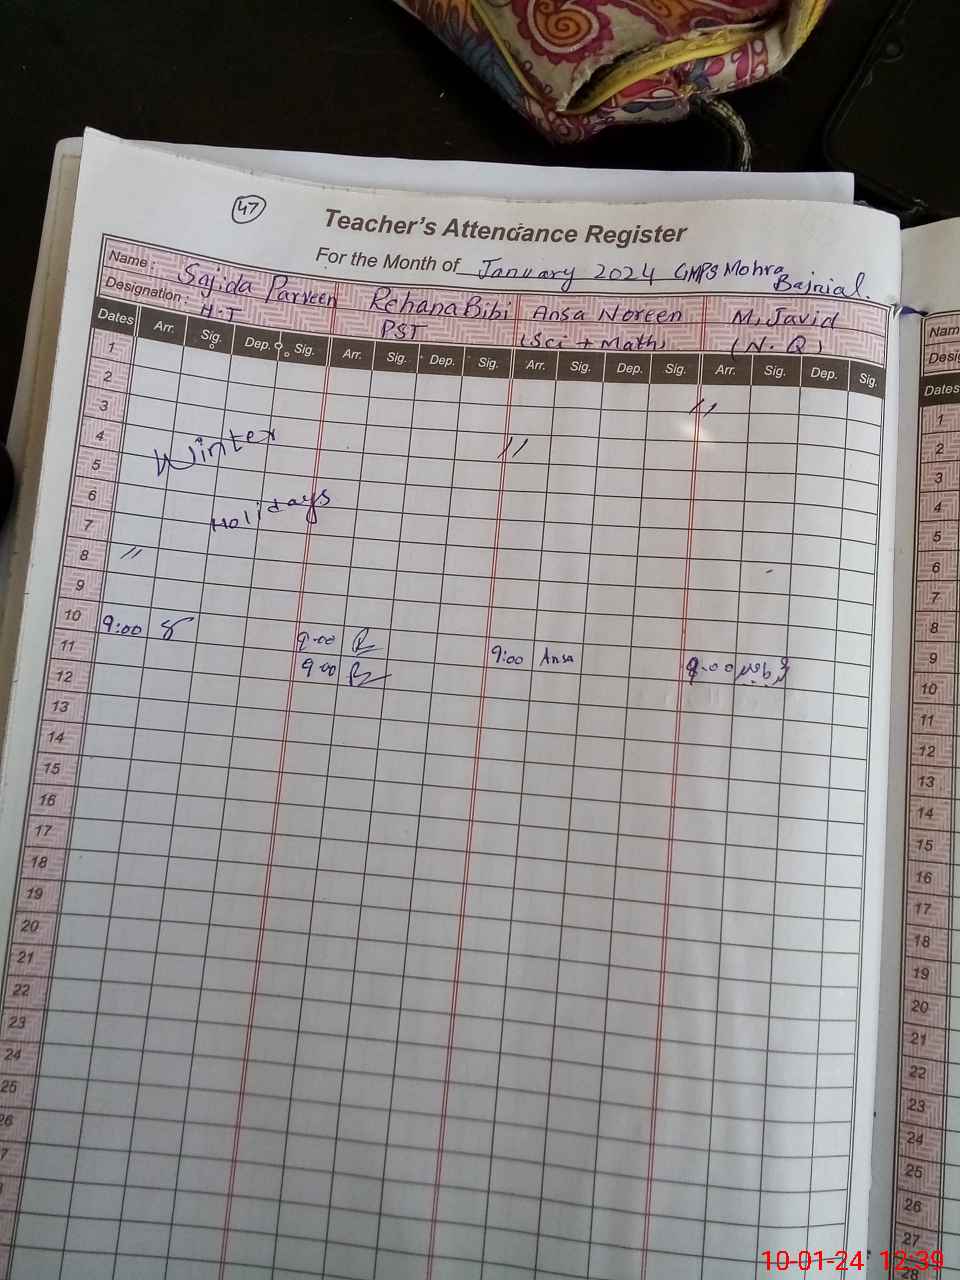 47
Teacher's Attendance Register
For the Month of January 2024 GMPS Mohra Bajnial.
Name: Sajida Parveen Rehana Bibi Ansa Noreen M. Javid
Designation: H.T PST (Sci + Math) (N.Q)
Dates Arr. Sig. Dep. Sig. Arr. Sig. Dep. Sig. Arr. Sig. Dep. Sig. Arr. Sig. Dep. Sig.
1
2
3 //
4 Winter //
5
6 Holidays
7
8 //
9
10 9:00 9:00 9:00 Ansa 9:00
11 9:00
12
13
14
15
16
17
18
19
20
21
22
23
24
25
26
7
Nam
Desig
Dates
1
2
3
4
5
6
7
8
9
10
11
12
13
14
15
16
17
18
19
20
21
22
23
24
25
26
27
28
10-01-24 12:39